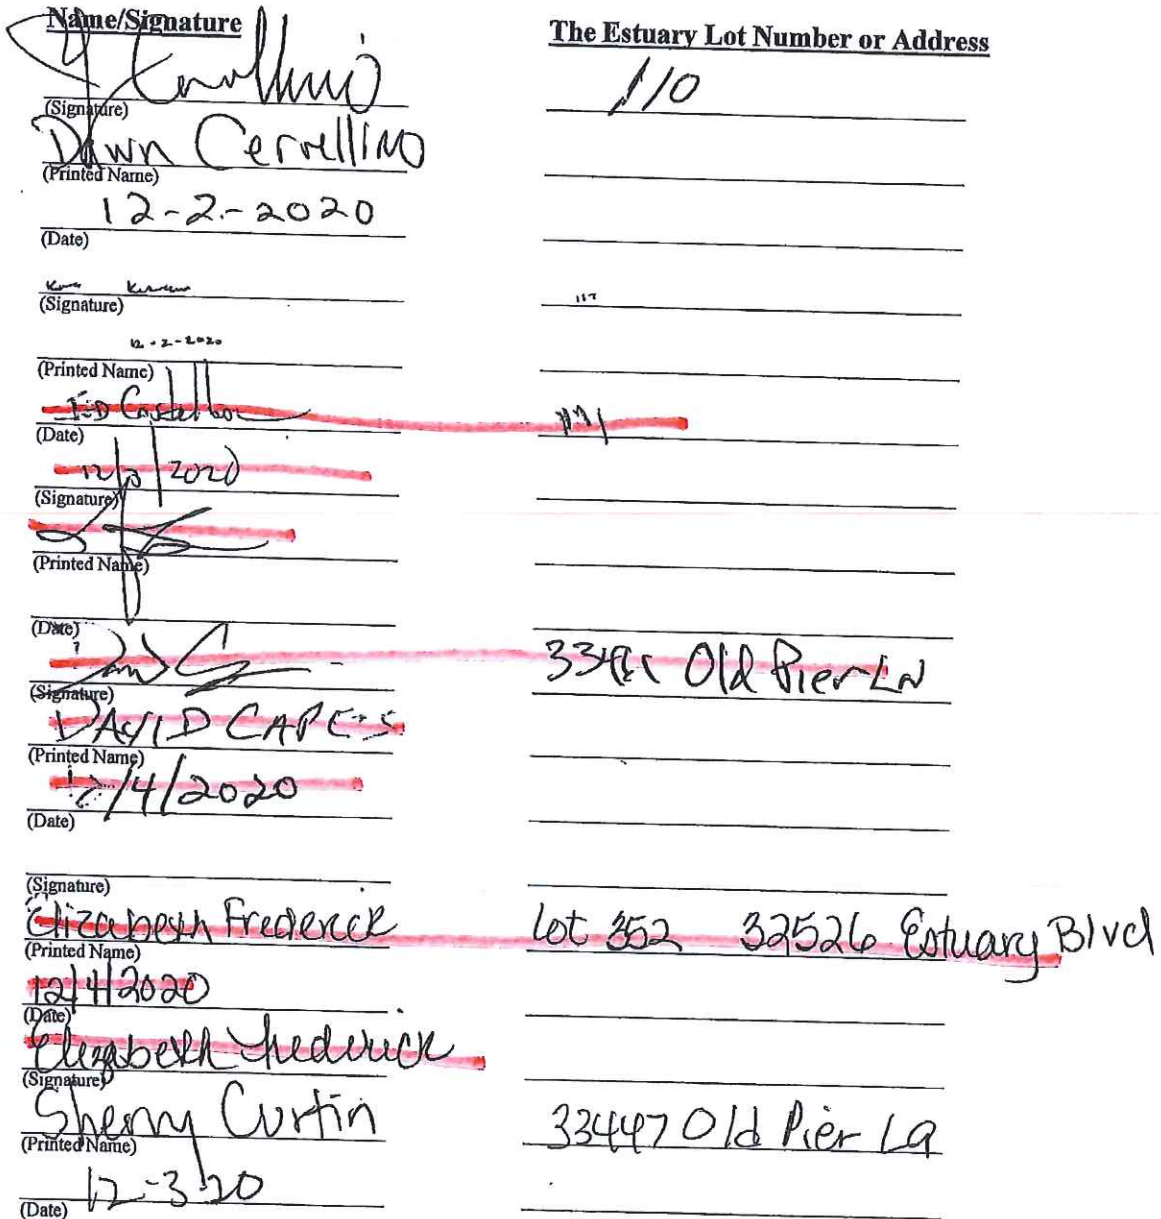 Name/Signature The Estuary Lot Number or Address
110
(Signature)
Dawn Cervellino
(Printed Name)
12-2-2020
(Date)
117
(Signature)
12-2-2020
(Printed Name)
(Date)
2020
(Signature)
(Printed Name)
(Date)
Old Pier LN
(Signature)
DAVID CAPES
(Printed Name)
12/4/2020
(Date)
(Signature)
Elizabeth Frederick lot 352 32526 Estuary Blvd
(Printed Name)
12/4/2020
(Date)
Elizabeth Frederick
(Signature)
Sherry Curtin 33447 Old Pier La
(Printed Name)
12-3-20
(Date)